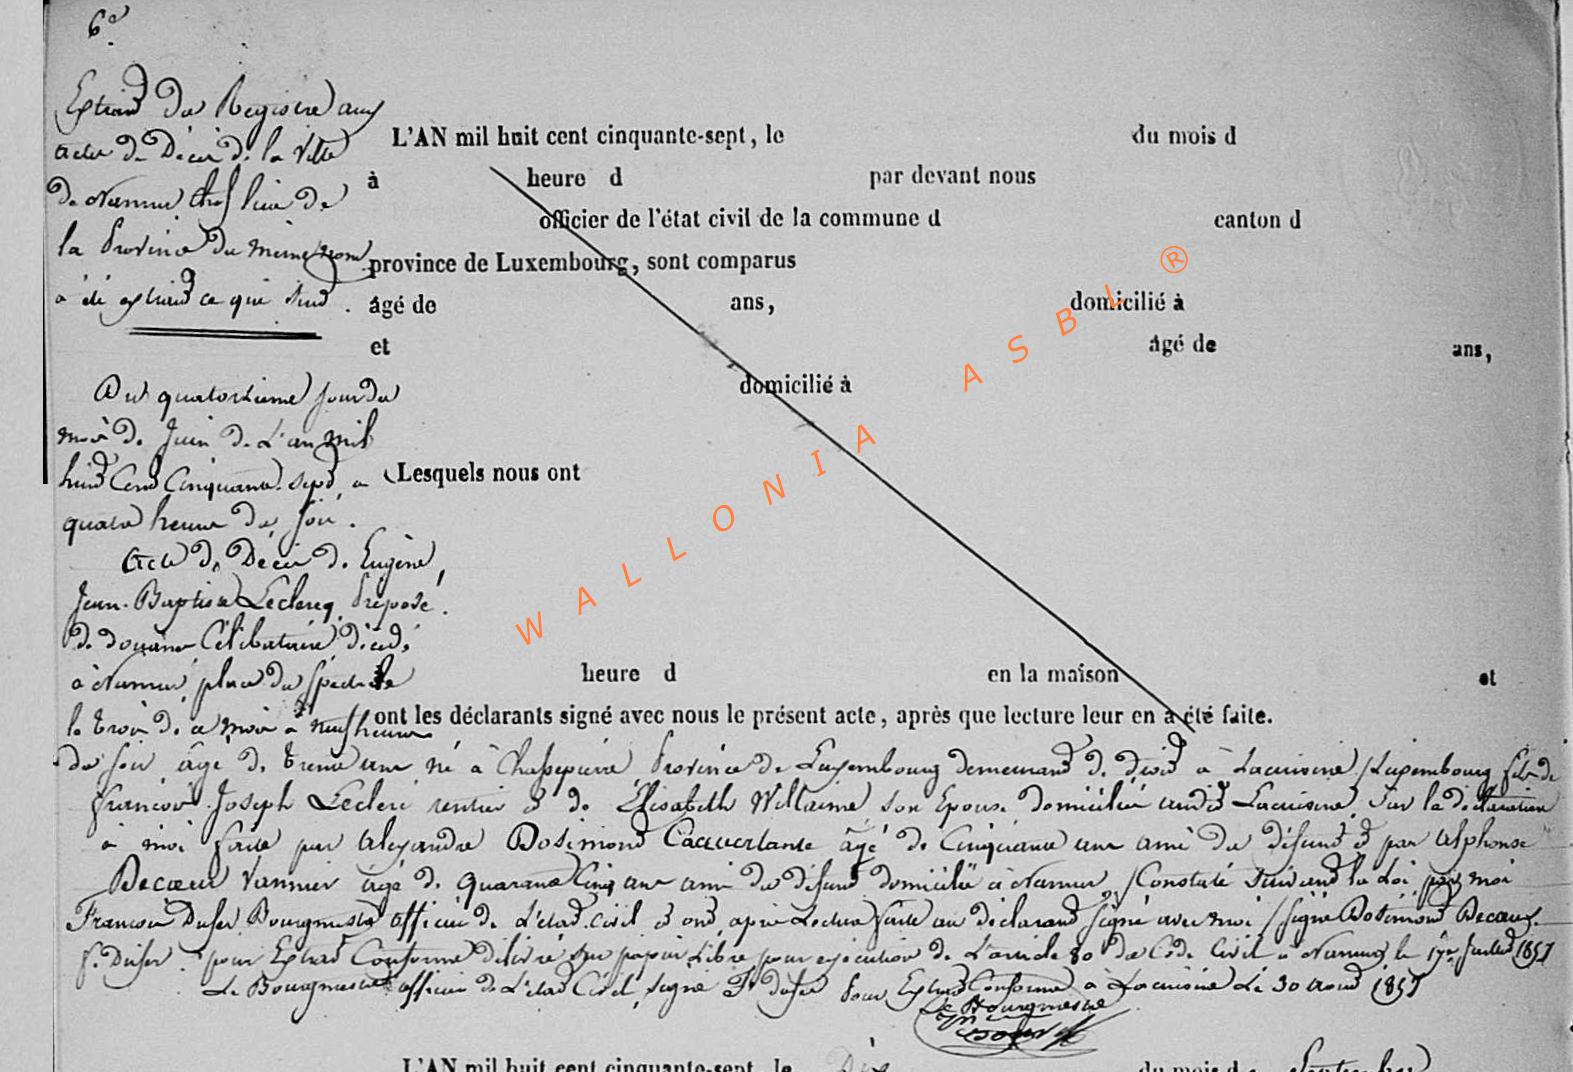 6e
Extrait du Registre aux
actes de Décès de la Ville
de Namur chef lieu de
la Province du même nom
a été extrait ce qui suit.
Du quatorzième jour du
mois de Juin de L'an mil
huit Cent Cinquante-sept, a
quatre heures du soir.
Acte de Décès de Eugène,
Jean-Baptiste Leclercq, Préposé
de douane Célibataire décédé
à Namur place du Spectacle
le trois de ce mois à neuf heures
du soir, âgé de trente un né à Chassepierre, Province de Luxembourg demeurant de droit à Lacuisine / Luxembourg fils de
François Joseph Leclerc rentier et de Elisabeth Willaime son Epouse domiciliés audit Lacuisine, Sur la déclaration
à moi faite par Alexandre Dosimont âgé de Cinquante un ami du défunt et par Alphonse
Decœur Vannier âgé de quarante Cinq ans ami du défunt domiciliés à Namur, / Constaté suivant la Loi par moi
François Dufer Bourgmestre officier de L'état Civil et ont, après Lecture faite au déclarant signé avec moi / signé Dosimont Decœur
f. Dufer. pour Extrait Conforme délivré sur papier Libre pour exécution de L'article 80 du Code Civil à Namur le 17 Juillet 1857
Le Bourgmestre officier de L'état Civil, signé F. dufer Pour Extrait Conforme à Lacuisine Le 30 août 1857
Le Bourgmestre
L'AN mil huit cent cinquante-sept, le du mois d
à heure d par devant nous
officier de l'état civil de la commune d canton d
province de Luxembourg, sont comparus
âgé de ans, domicilié à
et âgé de ans,
domicilié à
Lesquels nous ont
heure d en la maison et
ont les déclarants signé avec nous le présent acte, après que lecture leur en a été faite.
WALLONIA ASBL ®
L'AN mil huit cent cinquante-sept, le Dix du mois de Septembre